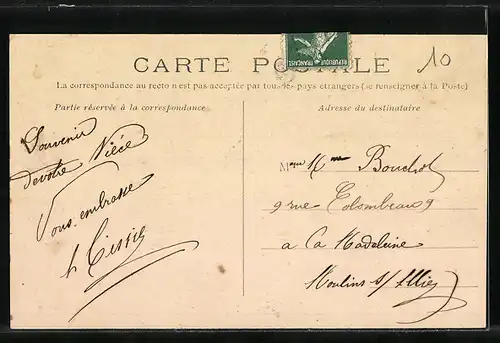 REPUBLIQUE FRANÇAISE
10
CARTE POSTALE
La correspondance au recto n'est pas acceptée par tous les pays etrangers (se renseigner à la Poste)
Partie réservée à la correspondance
Adresse du destinataire
Souvenir
de votre Nièce
Vous embrasse
M Mme Bouchot
9 rue 9
a La Madeleine
Moulins s/ Allier